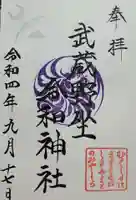 奉拝
武蔵野坐
令和神社
令和四年九月十七日